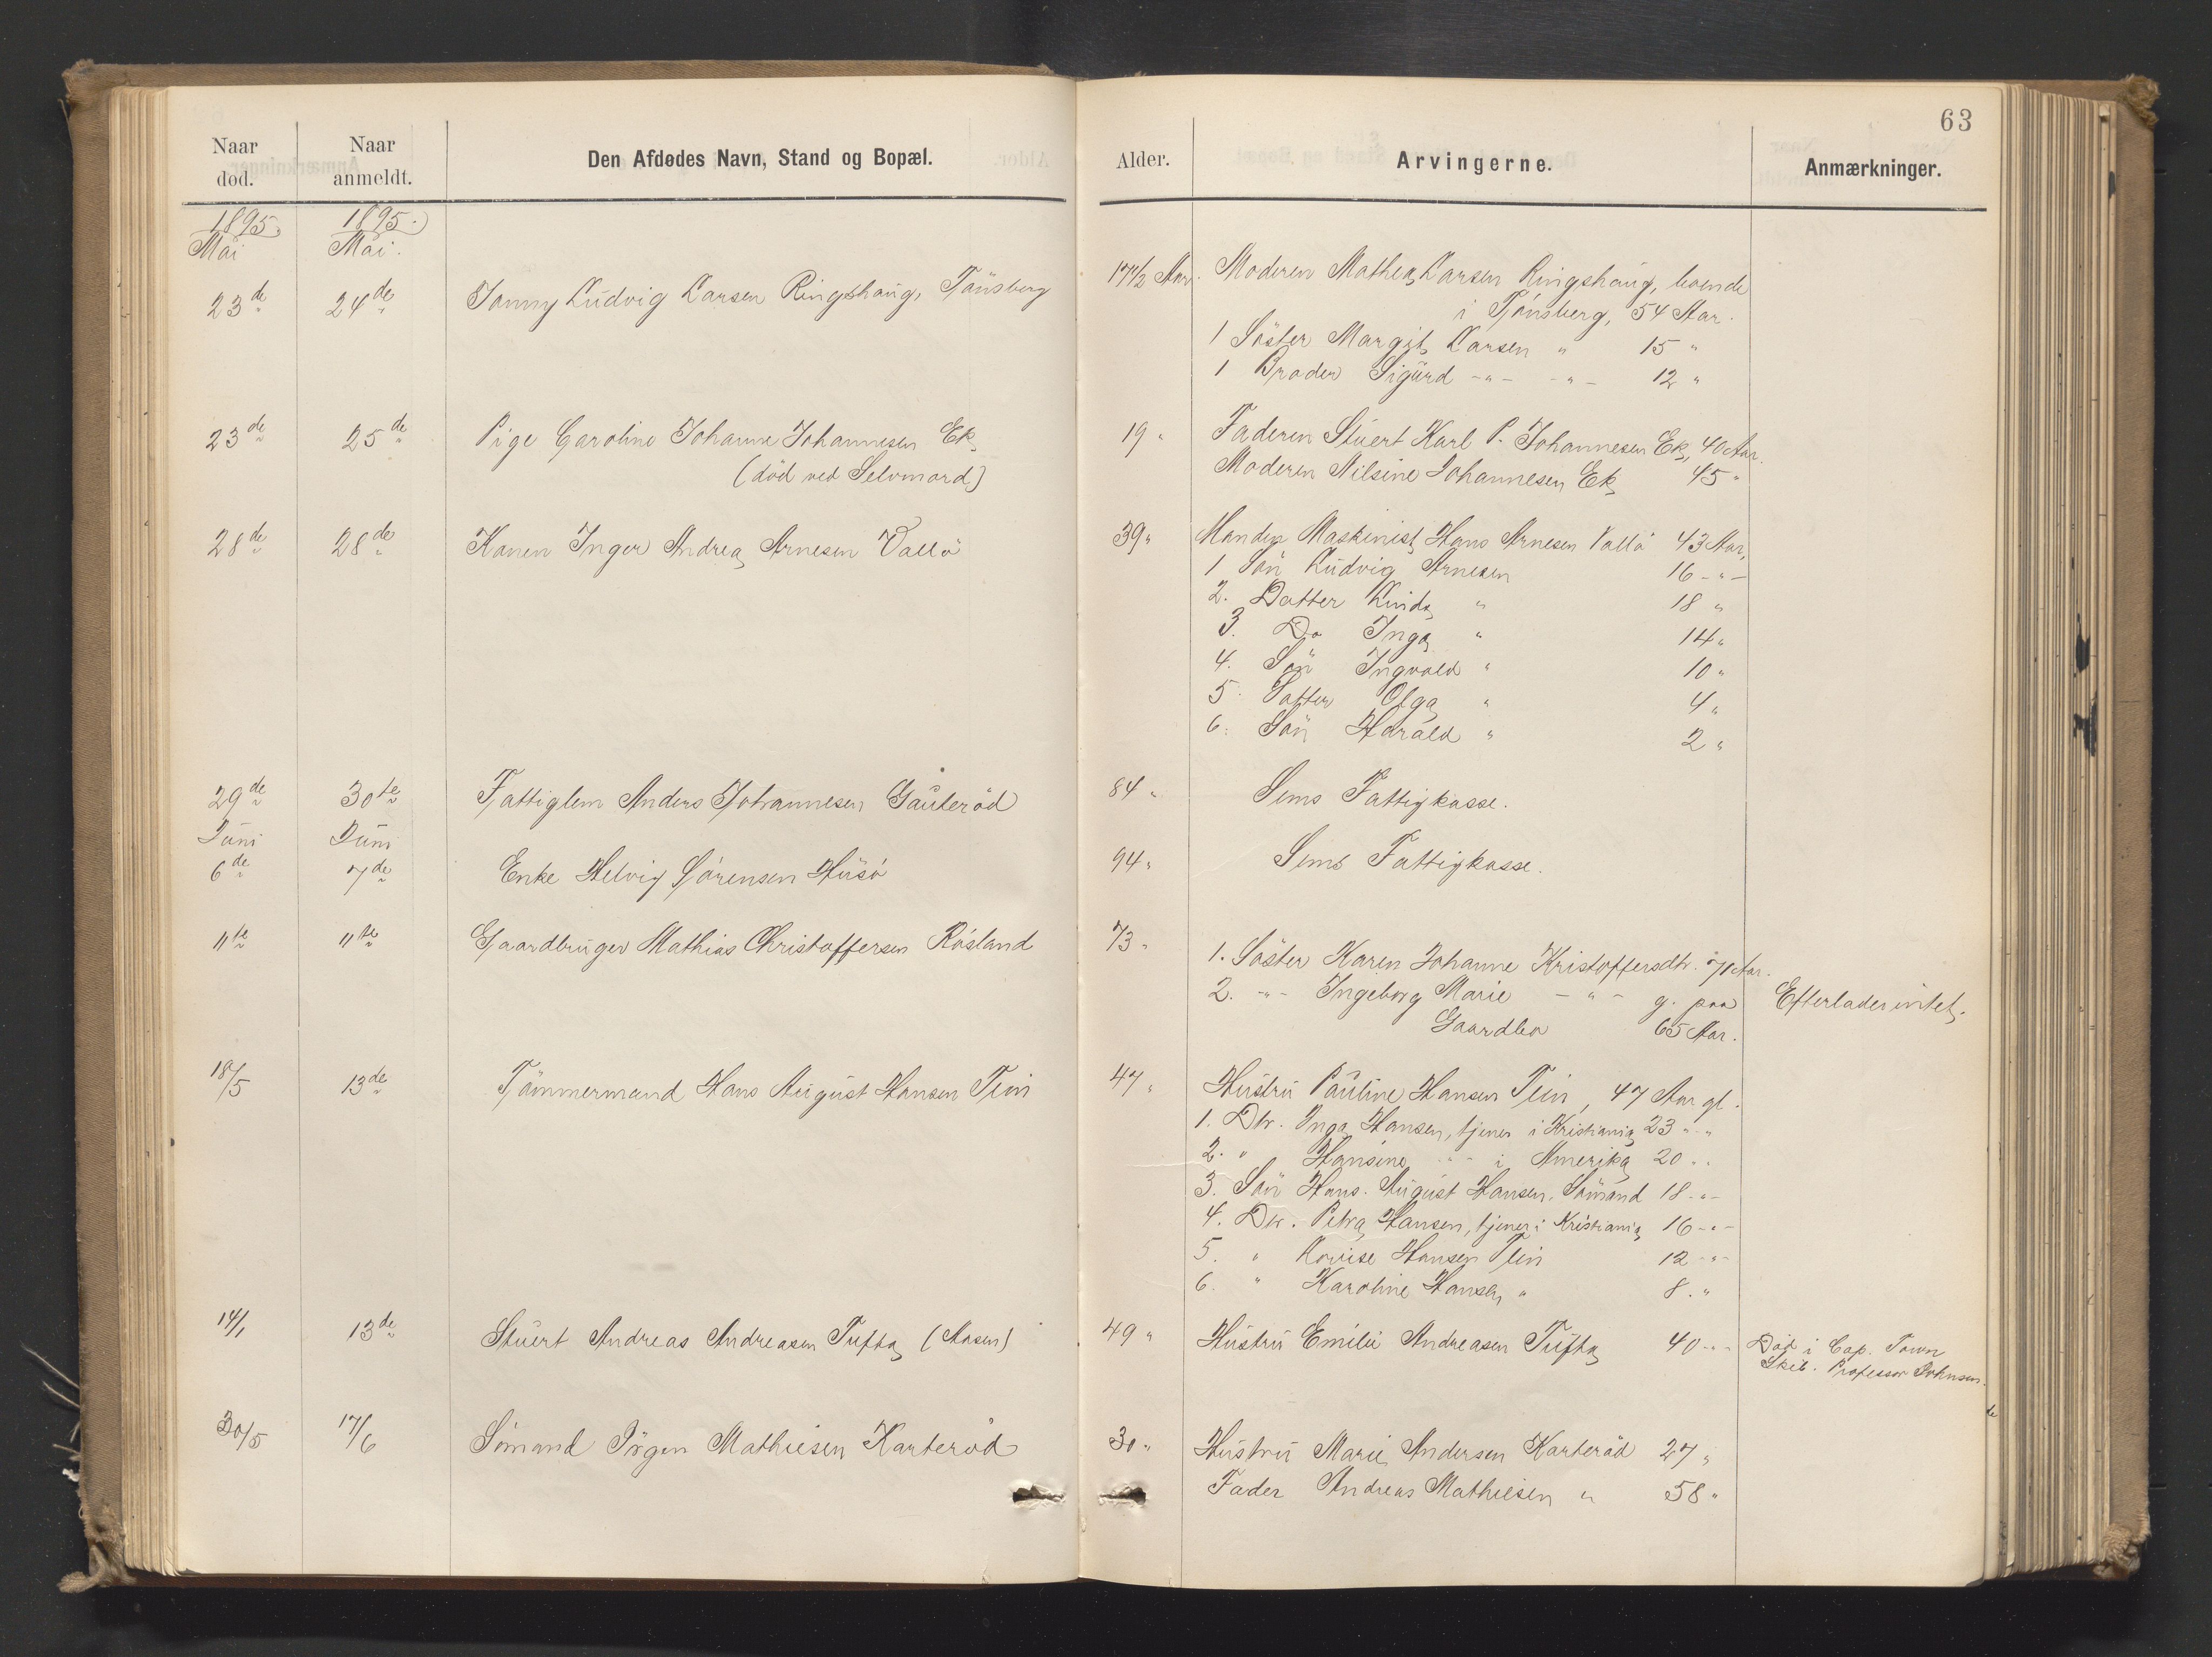 63
Naar død.
Naar anmeldt.
Den Afdødes Navn, Stand og Bopæl.
Alder.
Arvingerne.
Anmærkninger.
1895. 1895.
Mai Mai.
23de 24de Ludvig Larsen Ringshaug, Tönsberg 17 1/2 Aar. Moderen Mathea Larsen Ringshaug, boende
i Tönsberg, 54 Aar.
1 Söster Margit Larsen " 15 "
1 Broder Sigurd -"- -"- 12 "
23de 25de Pige Caroline Johanne Johannesen Ek 19 " Faderen Stuert Karl P. Johannesen Ek, 40 Aar.
(död ved Selvmord) Moderen Nilsine Johannesen Ek 45 "
28de 28de Konen Inger Andrea Arnesen Vallö 39 " Manden Maskinist Hans Arnesen Vallö 43 Aar,
1 Sön Ludvig Arnesen 16 -"-
2. Datter " 18 "
3. Do Inga " 14 "
4. Sön Ingvald " 10 "
5. Datter Olga " 4 "
6. Sön Harald " 2 "
29de 30te Fattiglem Anders Johannesen Gauteröd 84 " Sems Fattigkasse.
Juni Juni
6de 7de Enke Helvig Sörensen Husö 94 " Sems Fattigkasse.
11te 11te Gaardbruger Mathias Christoffersen Rösland 73 "
1. Söster Karen Johanne Kristoffersdtr. 70 Aar.
2. -"- Ingeborg Marie -"- g. paa Efterlader intet.
Gaardbo 65 Aar.
18/5 13de Tömmermand Hans August Hansen Tein 47 " Hustru Pauline Hansen Tein, 47 Aar gl.
1. Dtr. Inga Hansen, tjener i Kristiania 23 " "
2. " Hansine " " i Amerika 20 " "
3. Sön Hans August Hansen, Sömand 18 -"-
4. Dtr. Petra Hansen, tjener i Kristiania 16 -"-
5. " Lovise Hansen Tein 12 -"-
6. " Karoline Hansen " 8 . "
14/1 13de Stuert Andreas Andreasen Tufta (Aasen) 49 " Hustru Emilie Andreasen Tufta 40 -"- Död i Cap. Town
Skib. Professor Johnsen.
30/5 17/6 Sömand Jörgen Mathiesen Karteröd 30 " Hustru Marie Andersen Karteröd 27 "
Fader Andreas Mathiesen " 58 "